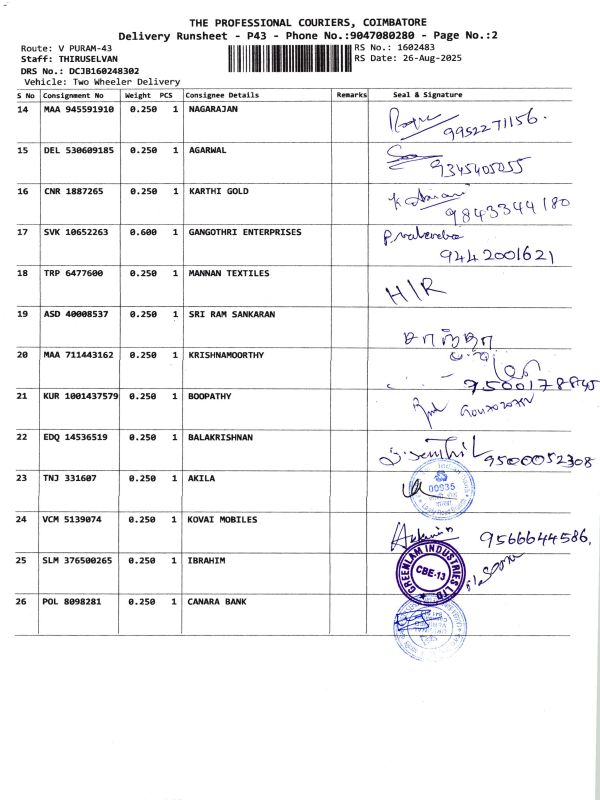 THE PROFESSIONAL COURIERS, COIMBATORE
Delivery Runsheet - P43 - Phone No.:9047080280 - Page No.:2
Route: V PURAM-43
RS No.: 1602483
Staff: THIRUSELVAN
RS Date: 26-Aug-2025
DRS No.: DCJB160248302
Vehicle: Two Wheeler Delivery
S No Consignment No Weight PCS Consignee Details Remarks Seal & Signature
14 MAA 945591910 0.250 1 NAGARAJAN
9952271156.
15 DEL 530609185 0.250 1 AGARWAL
9345405055
16 CNR 1887265 0.250 1 KARTHI GOLD
9843344180
17 SVK 10652263 0.600 1 GANGOTHRI ENTERPRISES
9442001621
18 TRP 6477600 0.250 1 MANNAN TEXTILES
H/R
19 ASD 40008537 0.250 1 SRI RAM SANKARAN
20 MAA 711443162 0.250 1 KRISHNAMOORTHY
9500178845
21 KUR 1001437579 0.250 1 BOOPATHY
22 EDQ 14536519 0.250 1 BALAKRISHNAN
S. Senthil 9500052308
23 TNJ 331607 0.250 1 AKILA
00935
24 VCM 5139074 0.250 1 KOVAI MOBILES
9566644586,
25 SLM 376500265 0.250 1 IBRAHIM
GREENLAM INDUSTRIES LTD
CBE-13
26 POL 8098281 0.250 1 CANARA BANK